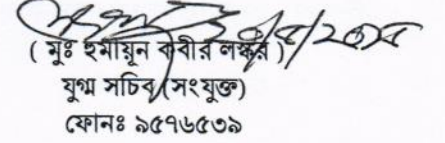 ( মুঃ হুমায়ূন কবীর লস্কর )
যুগ্ম সচিব (সংযুক্ত)
ফোনঃ ৯৫৭৬৫৩৯